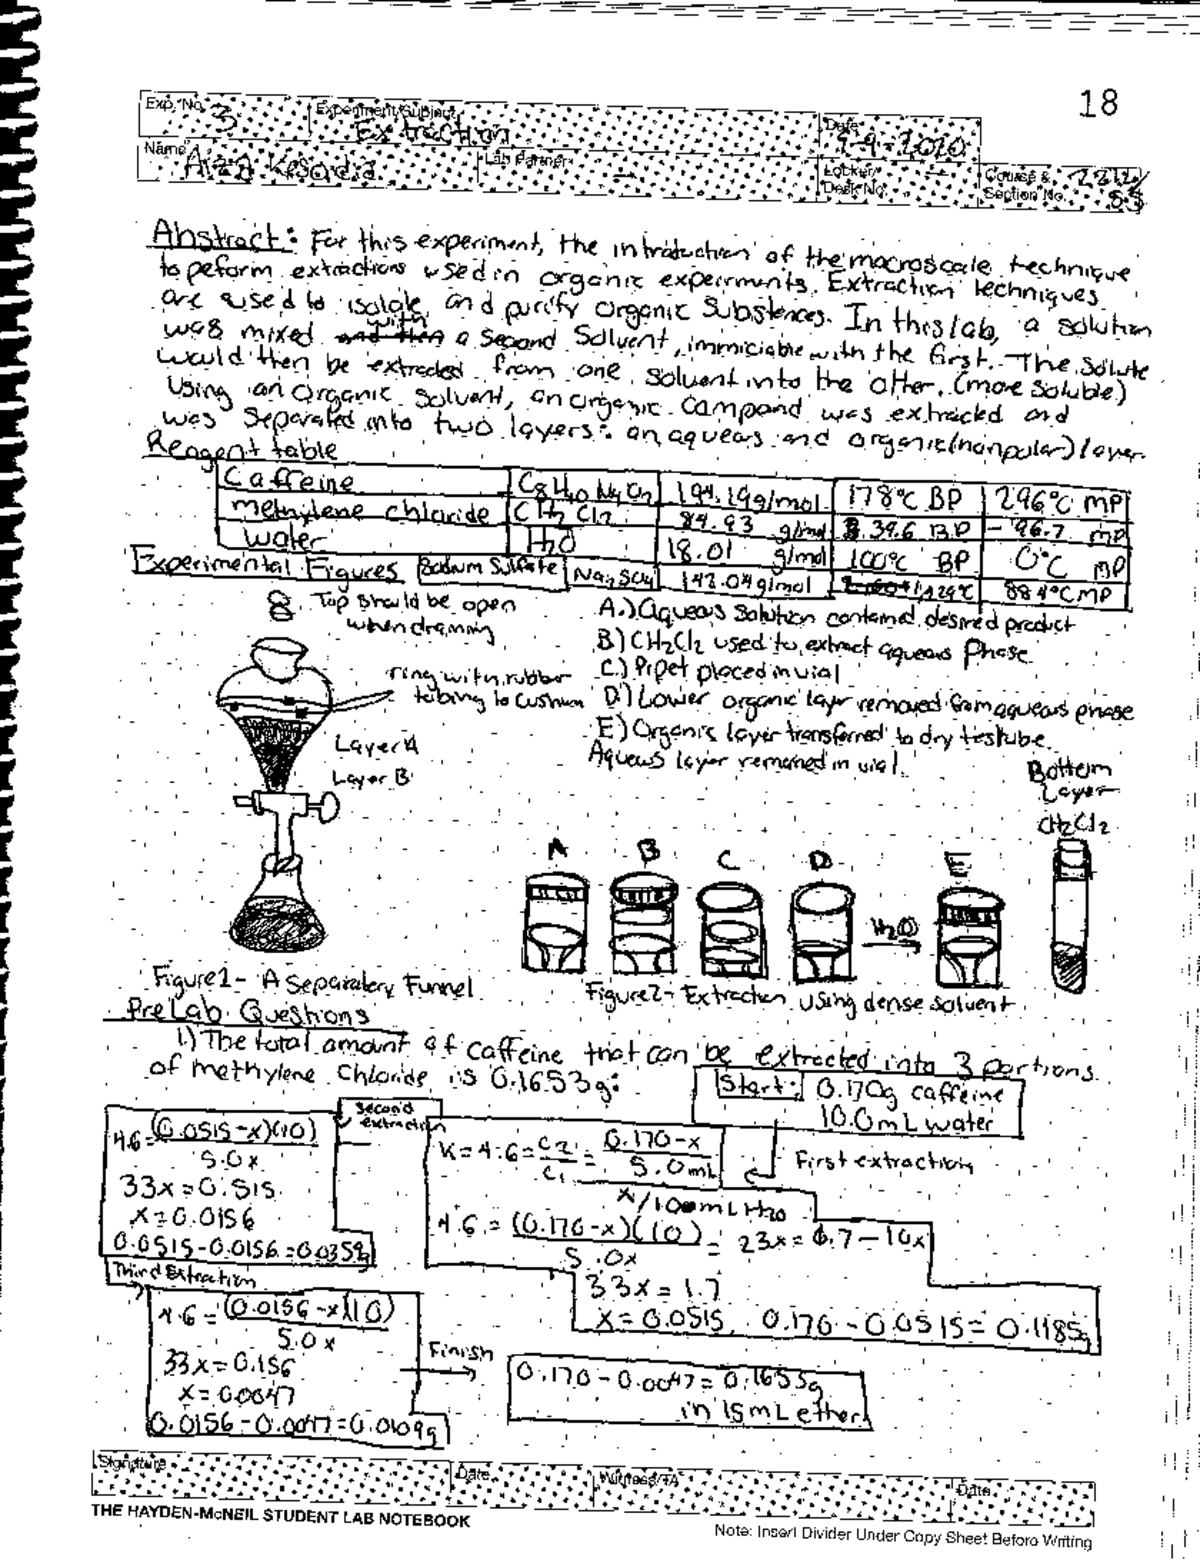 18
Exp. No. 3
Experiment/Subject Extraction
Date 9-9-2020
Name
Lab Partner —
Locker/Desk No. —
Course & Section No. 2212/
Abstract: For this experiment, the introduction of the macroscale technique
to peform extractions used in organic experiments. Extraction techniques
are used to isolate and purify organic Substances. In this lab, a solution
was mixed with a second Solvent, immiciable with the first. The Solute
would then be extracted from one solvent into the other. (more Soluble)
Using an Organic Solvent, an organic compound was extracted and
was Separated into two layers: an aqueous and organic (nonpolar) layer.
Reagent table
Caffeine C8H10N4O2 194.19g/mol 178°C BP 296°C MP
methylene chloride CH2Cl2 84.93 g/mol 39.6 BP -96.7 MP
water H2O 18.01 g/mol 100°C BP 0°C MP
Experimental Figures
Sodium Sulfate Na2SO4 142.04g/mol 884°C MP
Top should be open
when draining
ring with rubber
tubing to cushion
Layer A
Layer B
A.) Aqueous Solution contained desired product
B) CH2Cl2 used to extract aqueous Phase
C.) Pipet placed in vial
D) Lower organic layer removed from aqueous phase
E) Organic layer transferred to dry testtube.
Aqueous layer remained in vial.
Bottom
Layer
CH2Cl2
A B C D H2O E
Figure 1- A Separatory Funnel
Figure 2- Extraction using dense solvent
PreLab Questions
1.) The total amount of caffeine that can be extracted into 3 portions
of methylene chloride is 0.1653g:
Start: 0.170g caffeine
10.0mL water
First extraction
K=4.6=C2/C1=0.170-x/5.0mL
x/10.0mL H2O
4.6 = (0.170-x)(10)/5.0x = 23x = 1.7-10x
33x = 1.7
x=0.0515, 0.170-0.0515=0.1185g
second
extraction
4.6=(0.0515-x)(10)
5.0x
33x=0.515
x=0.0156
0.0515-0.0156=0.0359g
Third Extraction
4.6=(0.0156-x)(10)
5.0x
33x=0.156
x=0.0047
0.0156-0.0047=0.0109g
Finish
0.170-0.0047=0.1653g
in 15mL ether
Signature
Date
Witness/TA
Date
THE HAYDEN-McNEIL STUDENT LAB NOTEBOOK
Note: Insert Divider Under Copy Sheet Before Writing